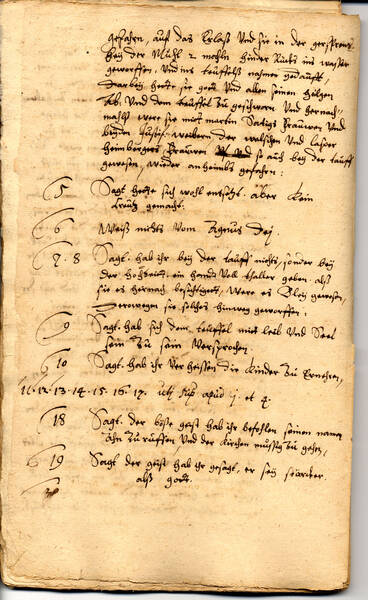 gefahren, auf das Eulaß Und sie in der gersprentz
bey der Mühl 2 mahln hinder Rucks ins wasser
geworffen, Und ins teuffels nahmen gedaufft,
darbey hette sie gott Und allen seinen heilgen
ab, Und dem teuffel zu geschworn Und hernach
mahlß wer sie mit martin Frauwen Und
beyden weibern der walschen Und Casper
heimbergers Frauwen so auch bey der tauff
gewesen, wieder anheimbs gefahren:
5 Sagt hette sich wohl entsetzt, aber kein
Creutz gemacht.
6 Weiß nichts vom Agnus Dej.
7. 8 Sagt. hab ihr bey der tauff nichts, sonder bey
der Hochzeitt ein handt Voll thaller geben. alß
sie es hernach besichtiget, were es Bley gewesen,
derowegen sie solches hinweg geworffen:
9 Sagt. hab sich dem teuffel mit leib Und Seel
sein zu sein Versprochen
10 Sagt. hab ihr Verheissen die Kinder zu Ernehren,
11. 12. 13. 14. 15. 16. 17. utj sup. apud j. et 4.
18 Sagt. der böße geist hab ihr befohlen seinen namen
ahn zu ruffen, Und der Kirchen müssig zu gehen,
19 Sagt der geist hab ihr gesagt, er sey stärcker
alß gott.